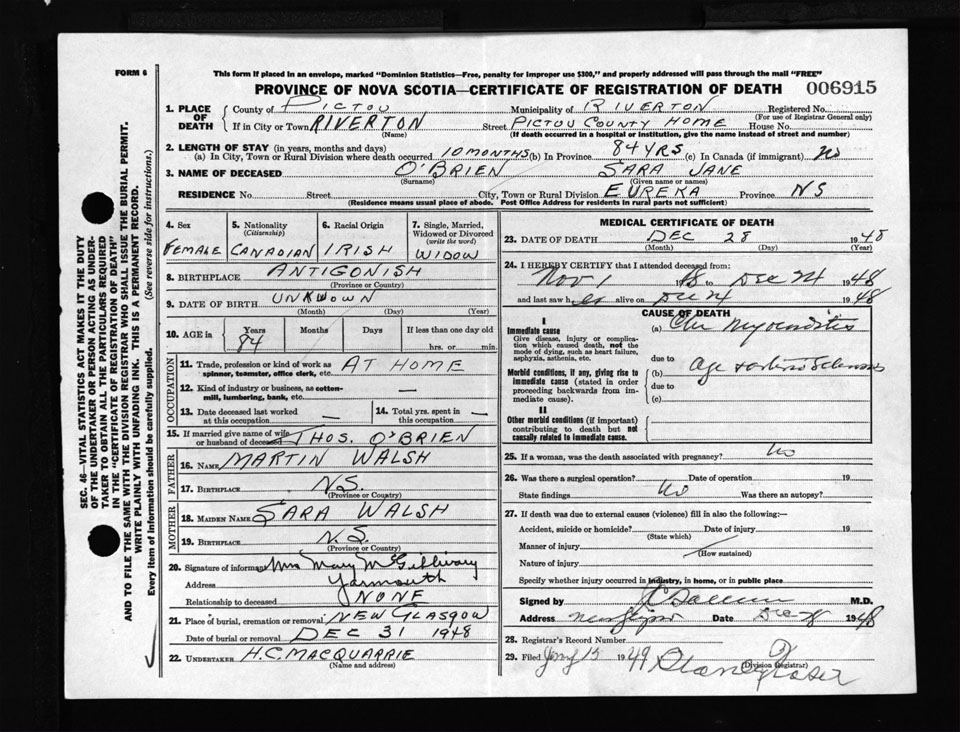 FORM 6
This form if placed in an envelope, marked "Dominion Statistics—Free, penalty for improper use $300," and properly addressed will pass through the mail "FREE"
PROVINCE OF NOVA SCOTIA—CERTIFICATE OF REGISTRATION OF DEATH 006915
1. PLACE OF DEATH
County of PICTOU Municipality of RIVERTON Registered No.
(For use of Registrar General only)
If in City or Town RIVERTON Street PICTOU COUNTY HOME House No.
(Name) (If death occurred in a hospital or institution, give the name instead of street and number)
2. LENGTH OF STAY (in years, months and days)
(a) In City, Town or Rural Division where death occurred 10 MONTHS (b) In Province 84 YRS (c) In Canada (if immigrant) no
3. NAME OF DECEASED O'BRIEN SARA JANE
(Surname) (Given name or names)
RESIDENCE No. Street City, Town or Rural Division EUREKA Province NS
(Residence means usual place of abode. Post Office Address for residents in rural parts not sufficient)
4. Sex
FEMALE
5. Nationality
(Citizenship)
CANADIAN
6. Racial Origin
IRISH
7. Single, Married, Widowed or Divorced
(write the word)
WIDOW
8. BIRTHPLACE ANTIGONISH
(Province or Country)
9. DATE OF BIRTH UNKNOWN
(Month) (Day) (Year)
10. AGE in Years Months Days If less than one day old
84 hrs. or min.
OCCUPATION
11. Trade, profession or kind of work as spinner, teamster, office clerk, etc. AT HOME
12. Kind of industry or business, as cotton-mill, lumbering, bank, etc. —
13. Date deceased last worked at this occupation —
14. Total yrs. spent in this occupation —
15. If married give name of wife or husband of deceased THOS. O'BRIEN
FATHER
16. NAME MARTIN WALSH
17. BIRTHPLACE N.S.
(Province or Country)
MOTHER
18. MAIDEN NAME SARA WALSH
19. BIRTHPLACE N.S.
(Province or Country)
20. Signature of informant Mrs Mary McGillivary
Address Yarmouth
Relationship to deceased NONE
21. Place of burial, cremation or removal NEW GLASGOW
Date of burial or removal DEC 31 1948
22. UNDERTAKER H.C. MACQUARRIE
(Name and address)
MEDICAL CERTIFICATE OF DEATH
23. DATE OF DEATH DEC 28 1948
(Month) (Day) (Year)
24. I HEREBY CERTIFY that I attended deceased from:
Nov 1 48 to Dec 24 1948
and last saw her alive on Dec 24 1948
CAUSE OF DEATH
I
Immediate cause
Give disease, injury or complication which caused death, not the mode of dying, such as heart failure, asphyxia, asthenia, etc.
(a) Chr Myocarditis
due to
Morbid conditions, if any, giving rise to immediate cause (stated in order proceeding backwards from immediate cause).
(b) Age
due to
(c)
II
Other morbid conditions (if important) contributing to death but not causally related to immediate cause.
25. If a woman, was the death associated with pregnancy? No
26. Was there a surgical operation? Date of operation 19
State findings No Was there an autopsy?
27. If death was due to external causes (violence) fill in also the following:—
Accident, suicide or homicide? Date of injury 19
(State which)
Manner of injury
(How sustained)
Nature of injury
Specify whether injury occurred in industry, in home, or in public place
Signed by M.D.
Address Date Dec 28 1948
28. Registrar's Record Number
29. Filed 15 1949 Clancy Fraser
(Division Registrar)
SEC. 46—VITAL STATISTICS ACT MAKES IT THE DUTY
OF THE UNDERTAKER OR PERSON ACTING AS UNDER-
TAKER TO OBTAIN ALL THE PARTICULARS REQUIRED
IN THE "CERTIFICATE OF REGISTRATION OF DEATH"
AND TO FILE THE SAME WITH THE DIVISION REGISTRAR WHO SHALL ISSUE THE BURIAL PERMIT.
WRITE PLAINLY WITH UNFADING INK. THIS IS A PERMANENT RECORD.
Every item of information should be carefully supplied. (See reverse side for instructions.)